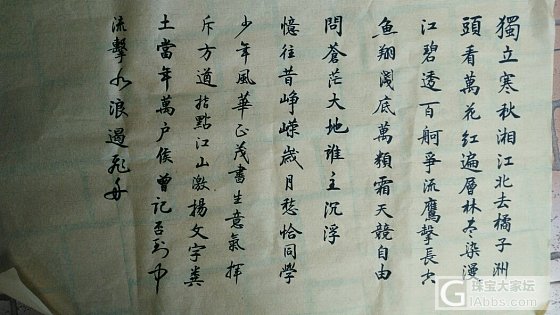 獨立寒秋湘江北去橘子洲
頭看萬花紅遍層林尽染漫
江碧透百舸爭流鷹擊長空
魚翔淺底萬類霜天競自由
問蒼茫大地誰主沉浮
憶往昔崢嶸歲月愁恰同學
少年風華正茂書生意氣揮
斥方遒指點江山激揚文字糞
土當年萬户侯曾記否到中
流擊水浪遏飛舟
珠宝大家坛
GIAbbs.com